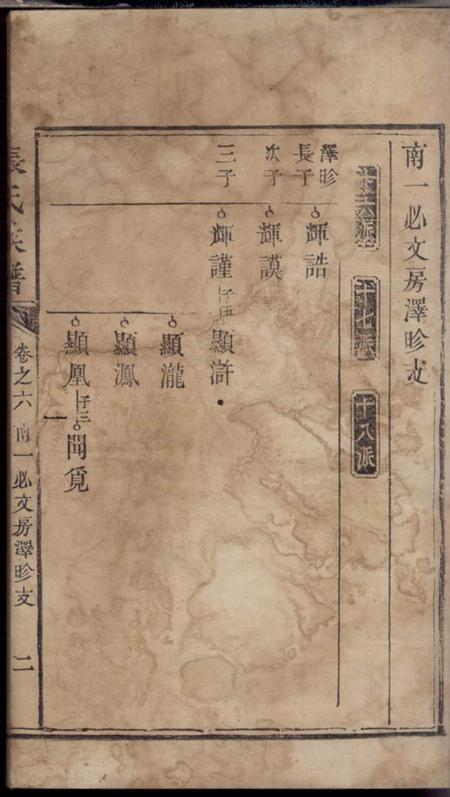 南一必文房澤昣支
十六派 十七派 十八派
澤昣
長子 輝誥
次子 輝謨
三子 輝謹 子五 顯滸
顯瀧
顯鳳
顯凰 子三 聞覓
張氏族譜 卷之六 南一必文房澤昣支 二